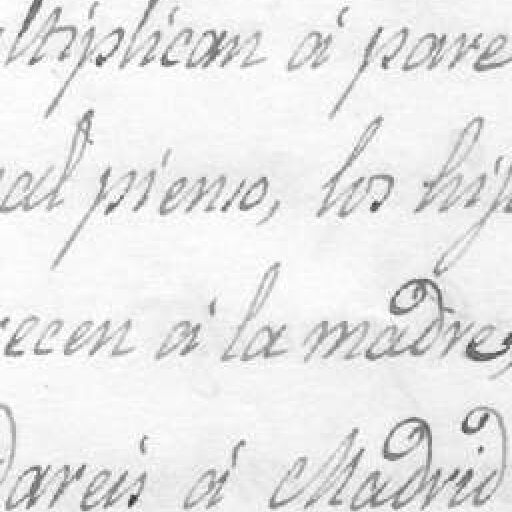 ltiplican á pare
al pienso, los hij
recen á la madre,
dareis á Madrid